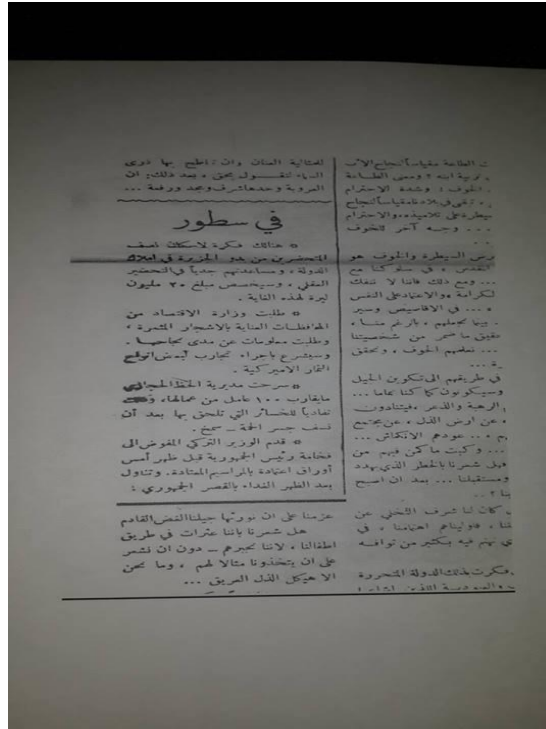 ن الطاعة مقياساً لنجاح الأب
تربية ابنه ؟ ومعنى الطاعة
الخوف ؛ وشدة الاحترام
تبقى في بلادنا مقياساً لنجاح
سيطرة على تلاميذه والاحترام
... وجه آخر للخوف
رس السيطرة والخوف هو
المقدس ، في سلوكنا مع
... ومع ذلك فاننا لا ننفك
لكرامة والاعتماد على النفس
... في الاقاصيص وسير
بينما نجعلهم ، بالرغم منا ،
دقيق ما ضمر من شخصيتنا
... نعلمهم الخوف ، ونحقق
ة ...
في طريقهم الى تكوين الجيل
وسيكونون كما كنا تماما ...
الرهبة والذعر ، فيتنادون
، عن ارض الذل ، عن مجتمع
م ، .. عودهم الانكماش ...
... وكبت ما كمن فيهم من
فهل شعرنا بالخطر الذي يهدد
ومستقبلنا ... بعد ان اصبح
بنا ؟ ..
، كان لنا شرف التخلي عن
ننا ، فأوليناهم اهتمامنا ، في
ذي نهتم فيه بكثير من توافه
فكرت بذلك الدولة المتحررة
للمثالية العنان وان نطمح بها ذرى
السماء لتقول بحق ، بعد ذلك : ان
العروبة وحدها شرف ومجد ورفعة ...
في سطور
• هنالك فكرة لاسكان نصف
المتحضرين من بدو الجزيرة في املاك
الدولة ، ومساعدتهم جدياً في التحضير
العقلي ، وسيخصص مبلغ ٣٠ مليون
ليرة لهذه الغاية .
• طلبت وزارة الاقتصاد من
المحافظات العناية بالاشجار المثمرة ،
وطلبت معلومات عن مدى نجاحها .
وسيشرع باجراء تجارب لبعض انواع
الثمار الاميركية .
• سرحت مديرية الخط الحجازي
مايقارب ١٠٠ عامل من عمالها ، وذلك
تفادياً للخسائر التي تلحق بها بعد أن
نسف جسر الحمة ــ سمخ .
• قدم الوزير التركي المفوض الى
فخامة رئيس الجمهورية قبل ظهر أمس
أوراق اعتماده بالمراسيم المعتادة . وتناول
بعد الظهر الغداء بالقصر الجمهوري :
عزمنا على ان نورثها جيلنا الغض القادم
هل شعرنا باننا عثرات في طريق
اطفالنا ، لاننا نجبرهم ــ دون ان نشعر
على ان يتخذونا مثالا لهم ، وما نحن
الا هيكل الذل العريق ...